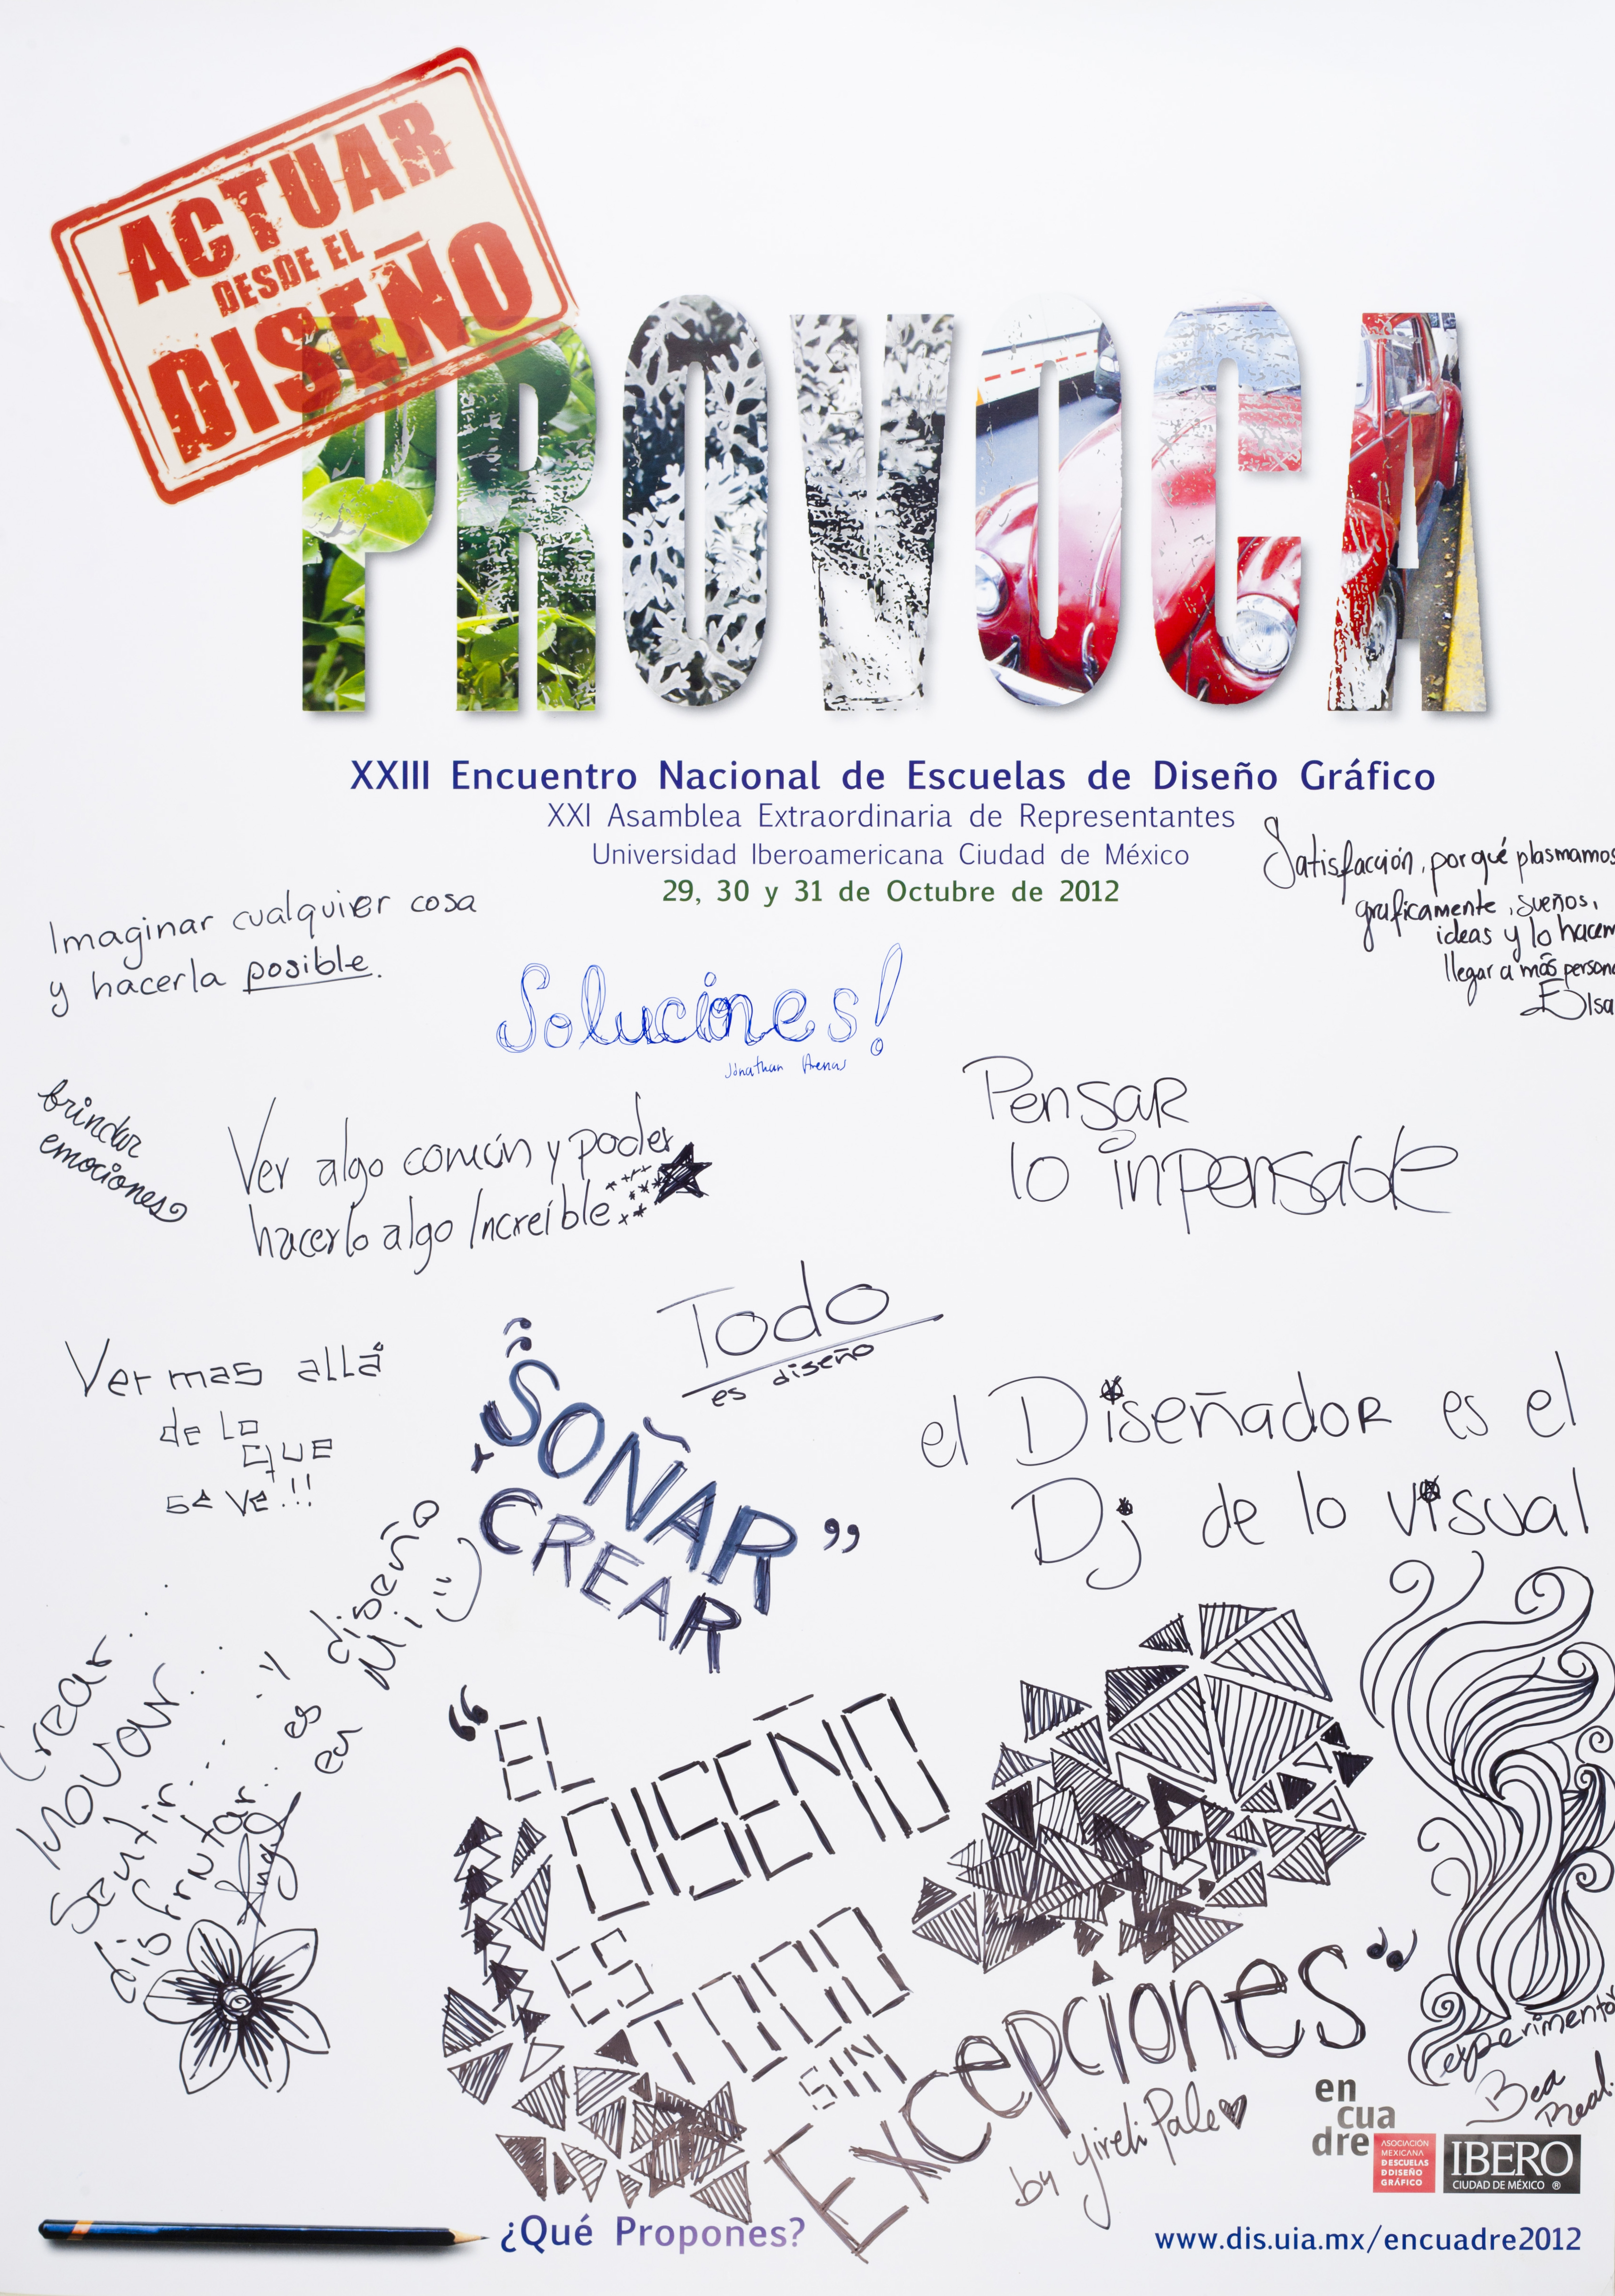 ACTUAR
DESDE EL
DISEÑO
PROVOCA
XXIII Encuentro Nacional de Escuelas de Diseño Gráfico
XXI Asamblea Extraordinaria de Representantes
Universidad Iberoamericana Ciudad de México
29, 30 y 31 de Octubre de 2012
Satisfacción, por qué plasmamos
graficamente, sueños,
ideas y lo hacem
llegar a más persona
Elsa
Imaginar cualquier cosa
y hacerla posible.
Soluciones!
Jonathan
brindar
emociones
Ver algo común y poder
hacerlo algo Increíble
Pensar
lo inpensable
Todo
es diseño
Ver mas allá
de lo
que
se ve!!!
"SOÑAR
Y
CREAR"
el Diseñador es el
Dj de lo visual
Crear...
Inovar...
Sentir... y
disfrutar... es diseño
ea Mi
Angel
"EL
DISEÑO
ES
TODO
SIN
Excepciones"
by Yireli Pale
experimentar
Bea
en
cua
dre
ASOCIACIÓN
MEXICANA
DESCUELAS
DDISEÑO
GRÁFICO
IBERO
CIUDAD DE MÉXICO ®
¿Qué Propones?
www.dis.uia.mx/encuadre2012